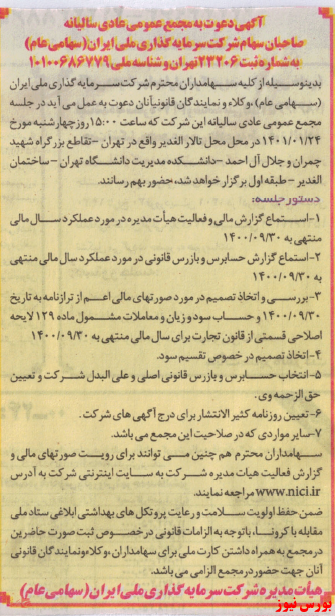 آگهی دعوت به مجمع عمومی عادی سالیانه
صاحبان سهام شرکت سرمایه گذاری ملی ایران (سهامی عام)
به شماره ثبت ۲۳۲۰۶ تهران و شناسه ملی ۱۰۱۰۰۶۸۶۷۷۹
بدینوسیله از کلیه سهامداران محترم شرکت سرمایه گذاری ملی ایران
(سهامی عام)، وکلاء و نمایندگان قانونی آنان دعوت به عمل می آید در جلسه
مجمع عمومی عادی سالیانه این شرکت که ساعت ۱۵:۰۰ روز چهارشنبه مورخ
۱۴۰۱/۰۱/۲۴ در محل محل تالار الغدیر واقع در تهران -تقاطع بزرگراه شهید
چمران و جلال آل احمد -دانشکده مدیریت دانشگاه تهران - ساختمان
الغدیر -طبقه اول برگزار خواهد شد، حضور بهم رسانند.
دستور جلسه:
۱-استماع گزارش مالی و فعالیت هیأت مدیره در مورد عملکرد سال مالی
منتهی به ۱۴۰۰/۰۹/۳۰
۲-استماع گزارش حسابرس و بازرس قانونی در مورد عملکرد سال مالی منتهی
به ۱۴۰۰/۰۹/۳۰
۳-بررسی و اتخاذ تصمیم در مورد صورتهای مالی اعم از ترازنامه به تاریخ
۱۴۰۰/۰۹/۳۰ و حساب سود و زیان و معاملات مشمول ماده ۱۲۹ لایحه
اصلاحی قسمتی از قانون تجارت برای سال مالی منتهی به ۱۴۰۰/۰۹/۳۰
۴-اتخاذ تصمیم در خصوص تقسیم سود.
۵-انتخاب حسابرس و بازرس قانونی اصلی و علی البدل شرکت و تعیین
حق الزحمه وی.
۶-تعیین روزنامه کثیر الانتشار برای درج آگهی های شرکت.
۷-سایر مواردی که در صلاحیت این مجمع می باشد.
سهامداران محترم هم چنین می توانند برای رویت صورتهای مالی و
گزارش فعالیت هیأت مدیره شرکت به سایت اینترنتی شرکت به آدرس
www.nici.ir مراجعه نمایند.
ضمن حفظ اولویت سلامت و رعایت پروتکل های بهداشتی ابلاغی ستاد ملی
مقابله با کرونا، با توجه به الزامات قانونی در خصوص ثبت صورت حاضرین
در مجمع به همراه داشتن کارت ملی برای سهامداران، وکلا و نمایندگان قانونی
آنان جهت حضور در مجمع الزامی می باشد.
هیأت مدیره شرکت سرمایه گذاری ملی ایران (سهامی عام)
بورس نیوز